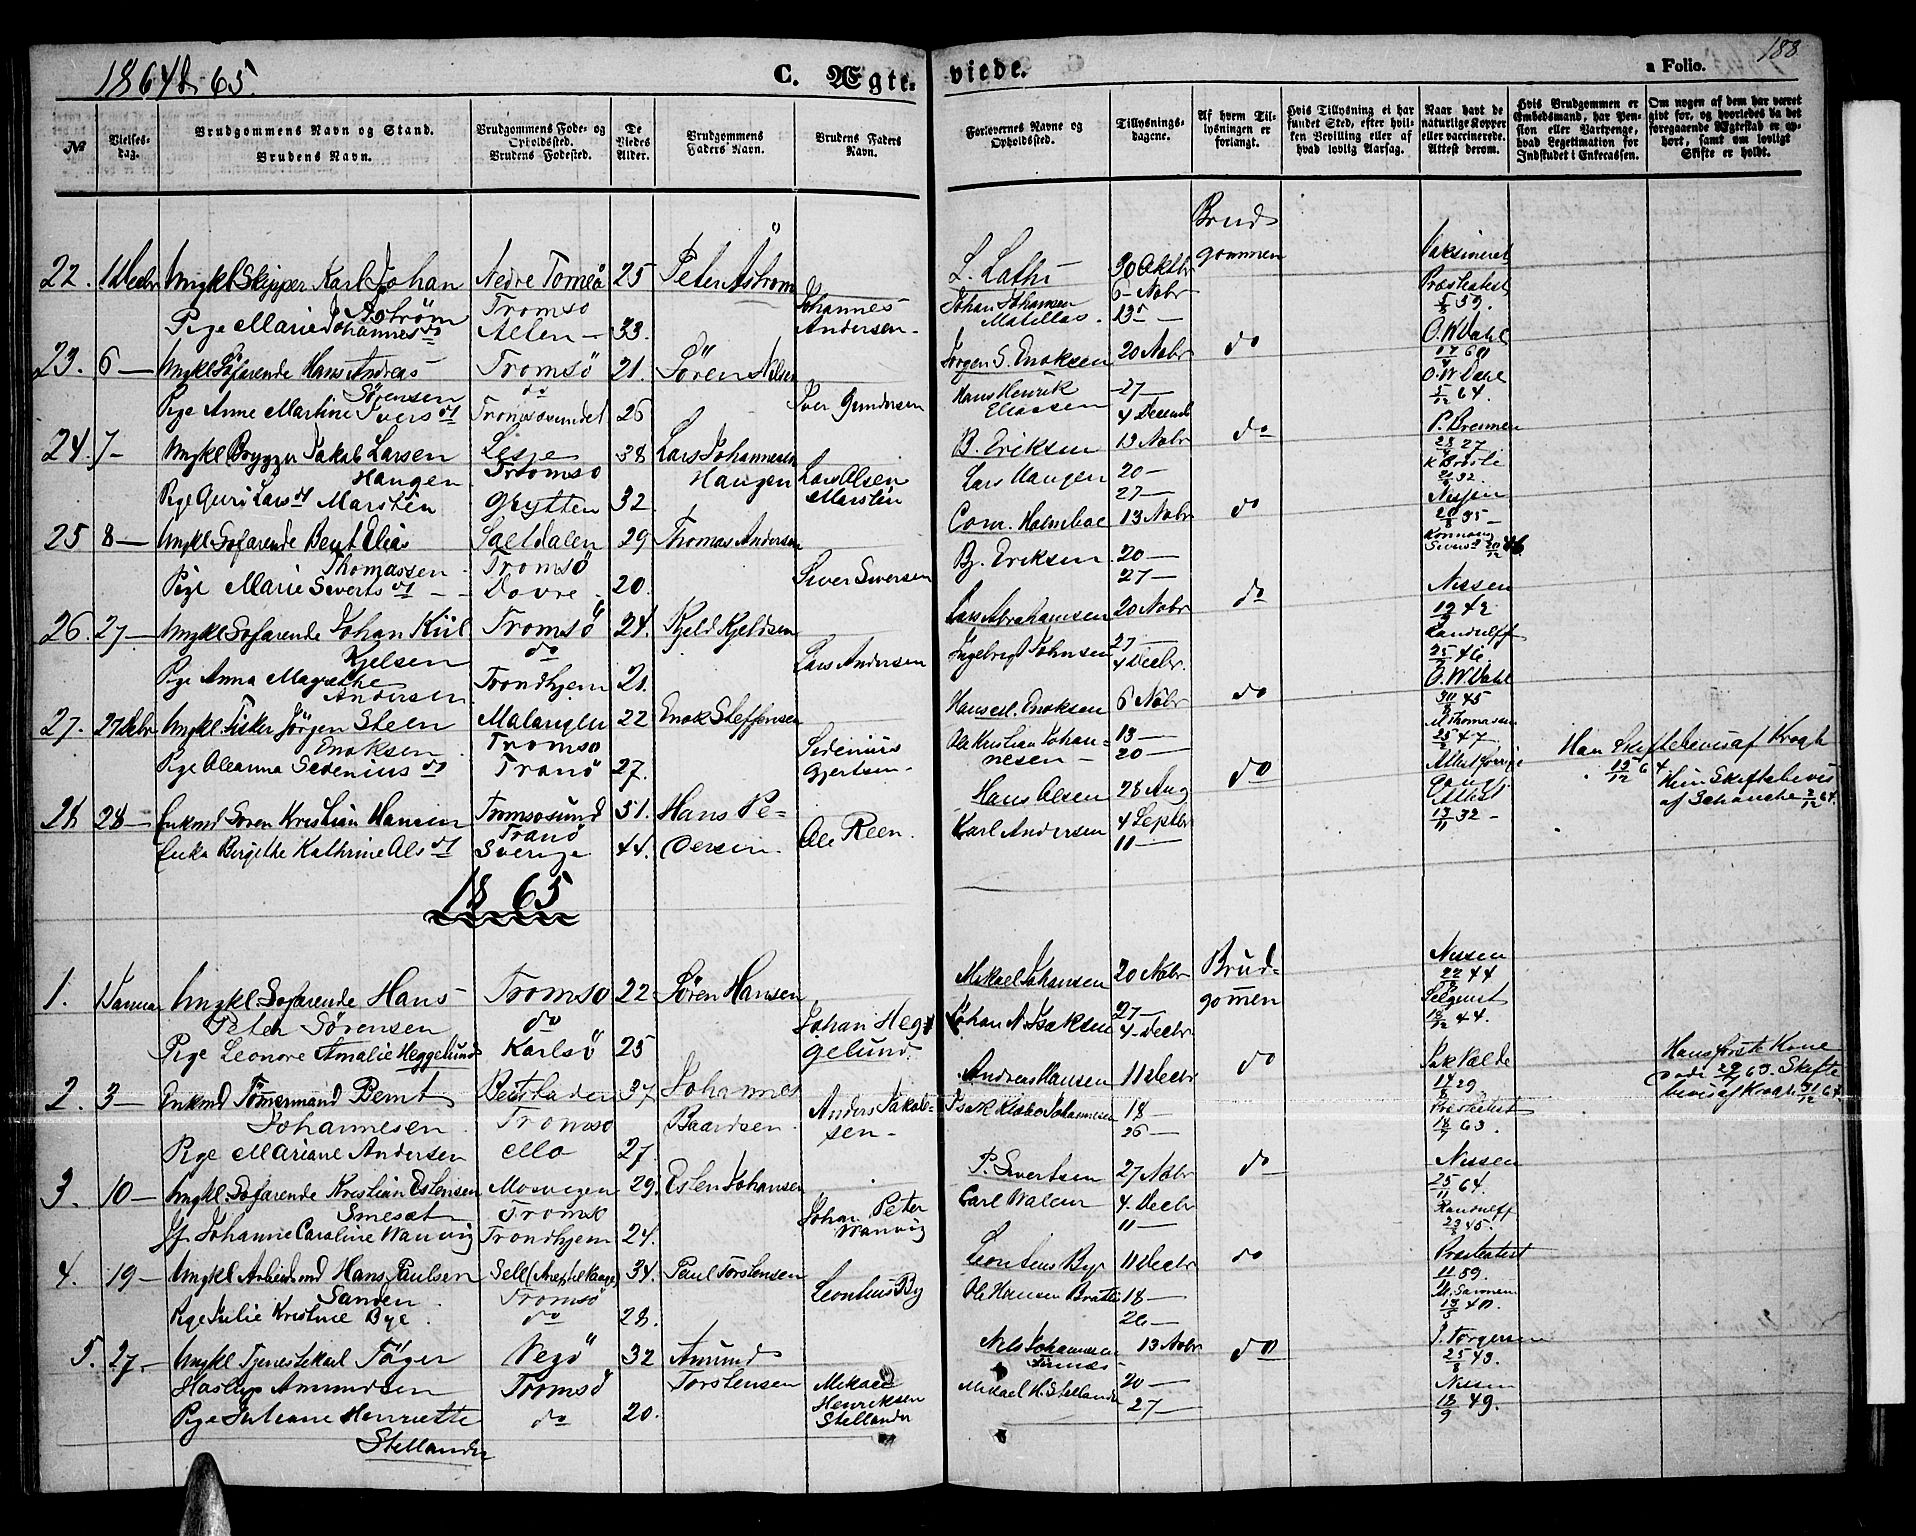 1864 & 65.
C. Ægte-
viede.
a Folio.
188
No
Vielses-
dag.
Brudgommens Navn og Stand.
Brudens Navn.
Brudgommens Føde- og
Opholdssted.
Brudens Fødested.
De
Viedes
Alder.
Brudgommens
Faders Navn.
Brudens Faders
Navn.
Forlovernes Navne og
Opholdssted.
Tillysnings-
dagene.
Af hvem Til-
lysningen er
forlangt.
Hvis Tillysning ei har
fundet Sted, efter hvil-
ken Bevilling eller af
hvad lovlig Aarsag.
Naar havt de
naturlige Kopper
eller vaccinerede.
Attest derom.
Hvis Brudgommen er
Embedsmand, har Pen-
sion eller Vartpenge,
hvad Legetimation for
Indskudet i Enkecassen.
Om nogen af dem har været
givt før, og hvorledes da det
foregaaende Ægteskab er op-
hørt, samt om lovligt
Skifte er holdt.
22. 1 Decbr Ungkl Skipper Karl Johan
Åström
Pige Marie Johannesd
Nedre Torneå
Tromsö
Alten
25
33.
Peter Åström
Johannes
Andersen
L. Lathi
Johan Johansen
Matillas.
30 Oktbr
6 Nobr
13
Brud
gommen
Vaksineret
Præsteattest
5/8 59.
O. W Dahl
23. 6 Ungkl Söfarende Hans Andreas
Sörensen
Pige Anne Martine Iversd
Tromsö
do
Tromsösundet
21.
26
Sören Nilsen
Iver Gundersen
Jörgen S. Enoksen
Hans Henrik
Eliassen
20 Nobr
27
4 Decemb
do
O. W Dahl
5/12 64.
24. 7 Ungkl Brygger Jakob Larsen
Haugen
Pige Guri Larsd Marstein
Lesje
Tromsö
Grytten
38
32
Lars Johannesen
Haugen
Lars Olsen
Marstein
B. Eriksen
Lars Haugen
13 Nobr
20
27
do
25 8 Ungkl Sofarende Bent Elias
Thomassen
Pige Marie Sivertsd
Saltdalen
Tromsö
Dovre
29
20.
Thomas Andersen
Siver Siversen
Conr. Holmboe
B. Eriksen
13 Nobr
20
27
do
Nissen
26. 27 Ungkl Sofarende Johan Kiil
Kjelsen
Pige Anna Magrethe
Andersen
Tromsö
do
Trondhjem
24.
21.
Kjeld Kjeldsen
Lars Andersen
Lars Abrahamsen
Ingebrigt Johnsen
20 Nobr
27
4 Decbr.
do
Nissen
Randulff
27. 27 Decbr Ungkl Fisker Jörgen Steen
Enoksen
Pige Oleanna Sedeniusd
Malangen
Tromsö
Tranö
22
27.
Enok Steffensen
Sedenius
Gjertsen
Hans El. Enoksen
Ole Kristian Johan-
nesen
6 Nobr
13
20
do
O. W Dahl
30/8 45
25/2 47.
28 28 Enkmd Sören Kristian Hansen
Enke Bergethe Kathrine Olsd
Tromsösund
Tranö
Sverige
51.
44.
Hans Pe-
dersen
Ole Reen.
Hans Olsen
Karl Andersen
28 Aug
4 Septbr
11
do
Attest
13/11 32
Han Skiftebevis af Krogh
15/12 64
Hun Skiftebevis
af Schanche 2/12 64.
1865
1. 1 Januar Ungkl Sofarende Hans
Peter Sörensen
Pige Leonore Amalie Heggelund
Tromsö
do
Karlsö
22
25
Sören Hansen
Johan Heg-
gelund.
Mikael Johansen
Johan N. Isaksen
20 Nobr
27
4 Decbr
Brud-
gommen
Nissen
22/8 44
18/12 44.
2. 3 Enkmd Tömermand Bernt
Johannesen
Pige Mariane Andersen
Tromsö
37
27.
Johannes
Baardsen
Anders Jakob-
sen
Andreas Hansen
11 Decbr
18
26
do
Præsteattest
18/7 63.
Hans förste Kone
döde 29/7 63. Skifte
bevis af Krogh 31/12 64
3. 10 Ungkl Sofarende Kristian Estensen
Smesæt
Jf Johanne Caroline Wanvig
Mosvigen
Tromsö
Trondhjem
29.
24.
Esten Johansen
Johan Peter
Wanvig
P. Sivertsen
Carl Walen
27 Nobr
4 Decbr
11
do
Nissen
25/11 64.
Randulff
29/8 45.
4. 19 Ungkl Arbeidsmd Hans Paulsen
Sanden
Pige Julie Kristine Bye
Tromsö
do
34.
28.
Paul Torstensen
Leontius By
Leontius Bye
Ole Hansen Bratli
11 Decbr
18
26
do
Præsteattest
11/11 59.
13/5 40.
5. 27 Ungkl Tjenestekarl Töger
Haslup Amundsen
Pige Juliane Henriette
Stellander
Vegö
Tromsö
do
32
20.
Amund
Torstensen
Mikael
Henriksen
Stellander
Nils Johannesen
Mikael H. Stellander
13 Nobr
20
27
do
J. Torgersen
25/8 43.
Nissen
18/9 49.